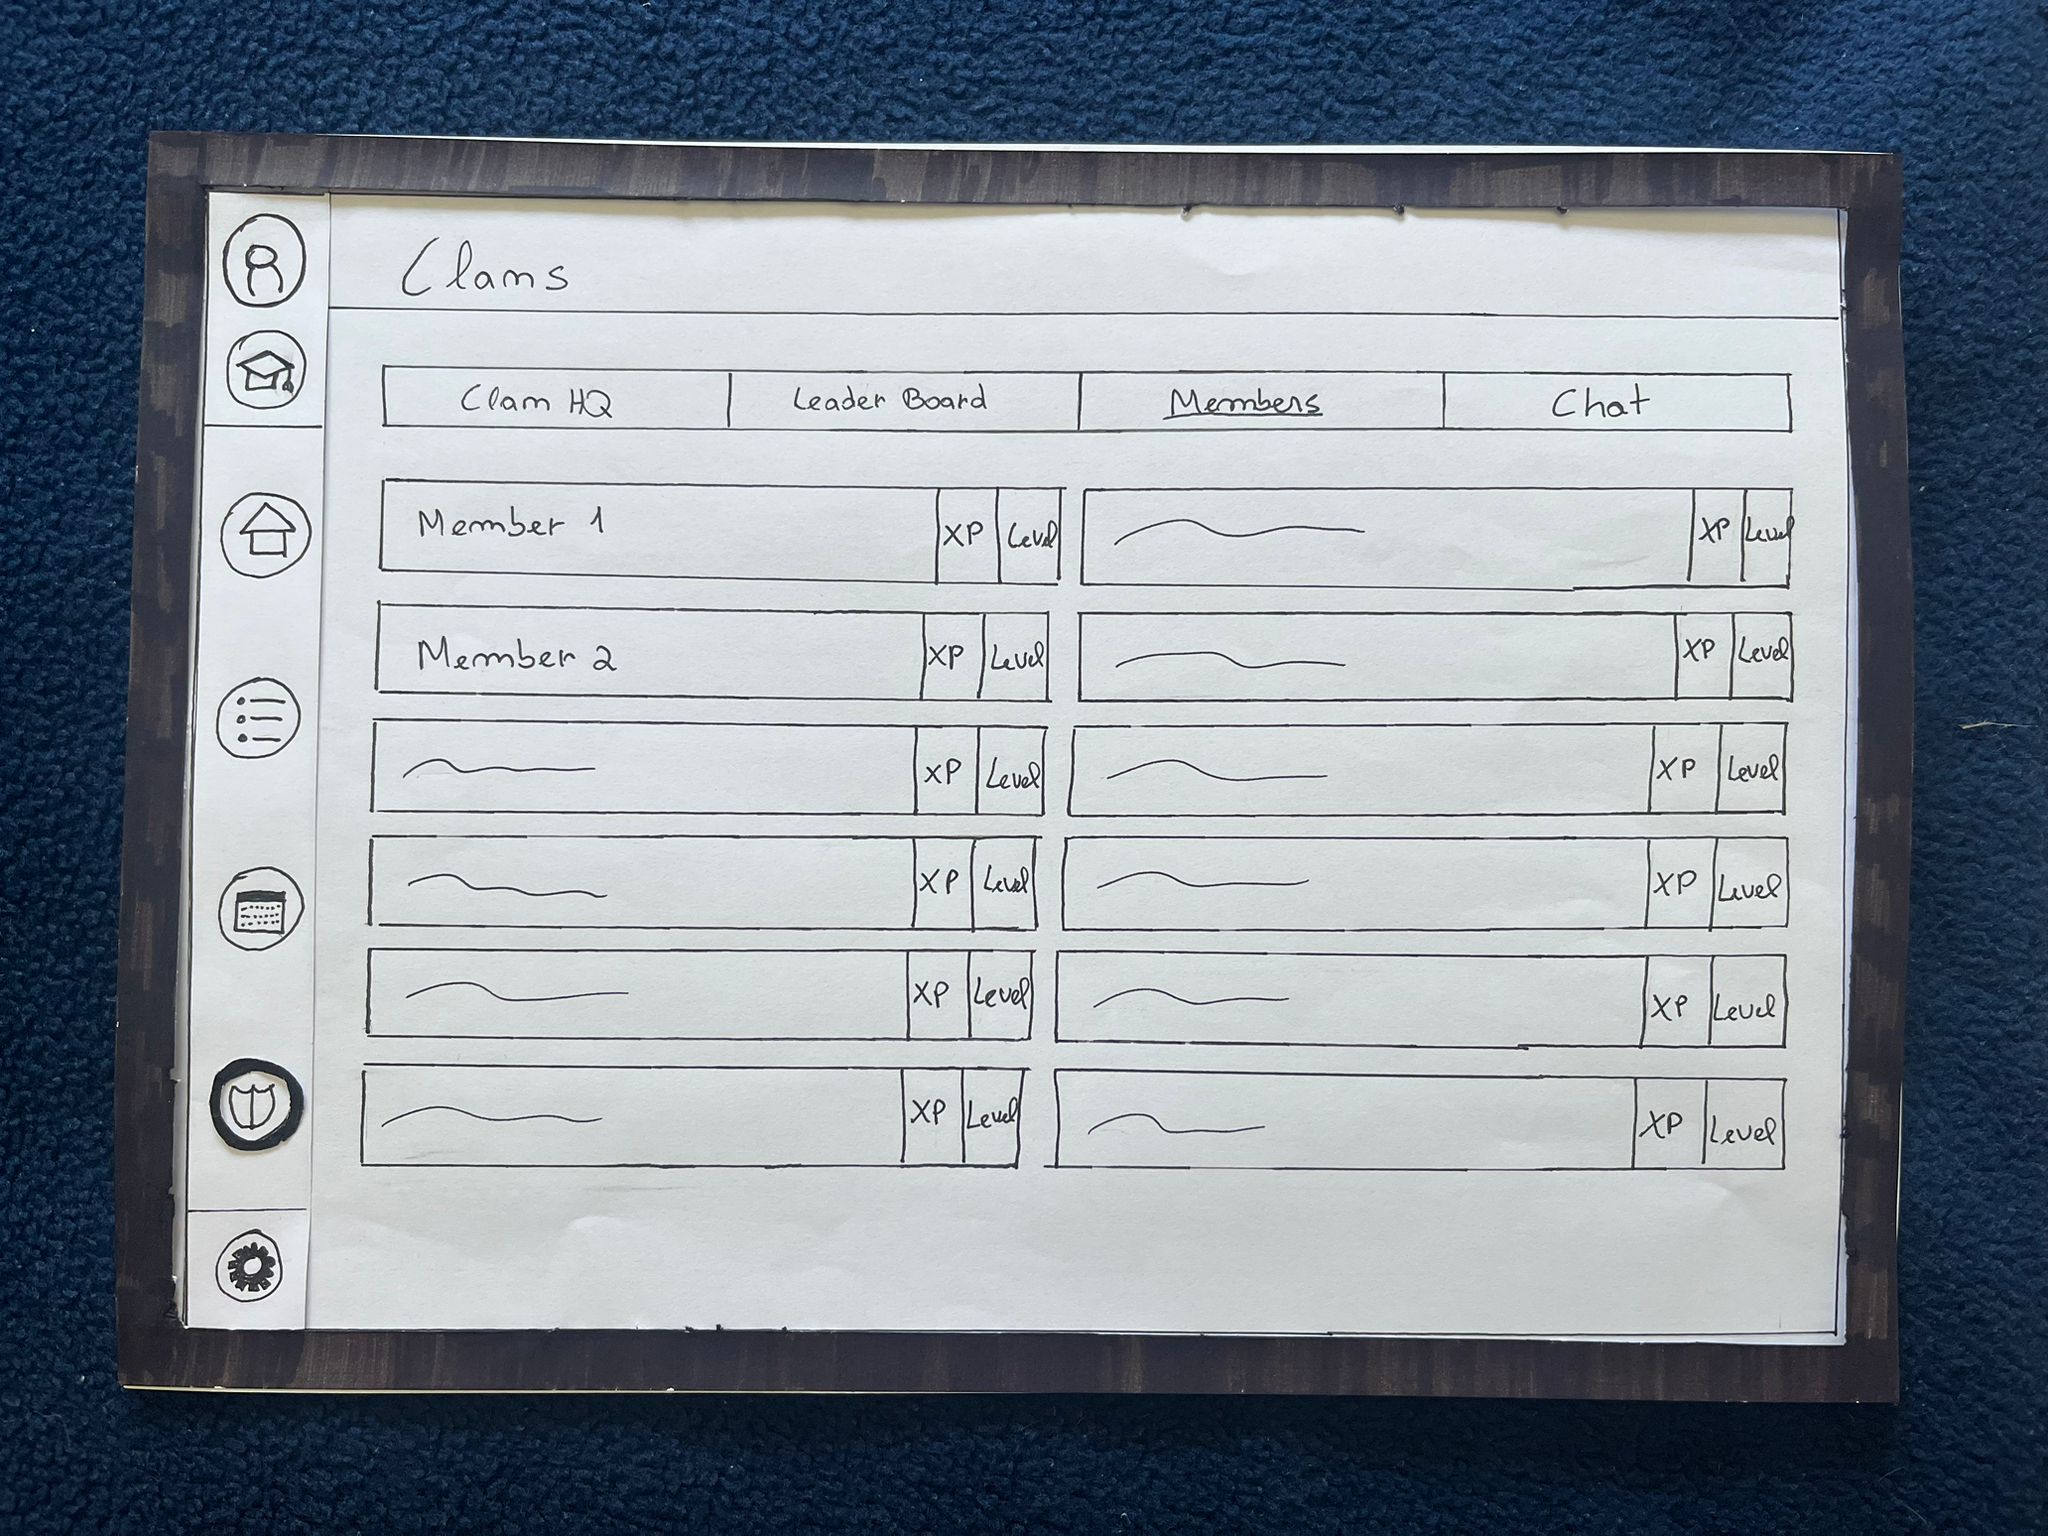 Clams
Clam HQ Leader Board Members Chat
Member 1 XP Level XP Level
Member 2 XP Level XP Level
XP Level XP Level
XP Level XP Level
XP Level XP Level
XP Level XP Level